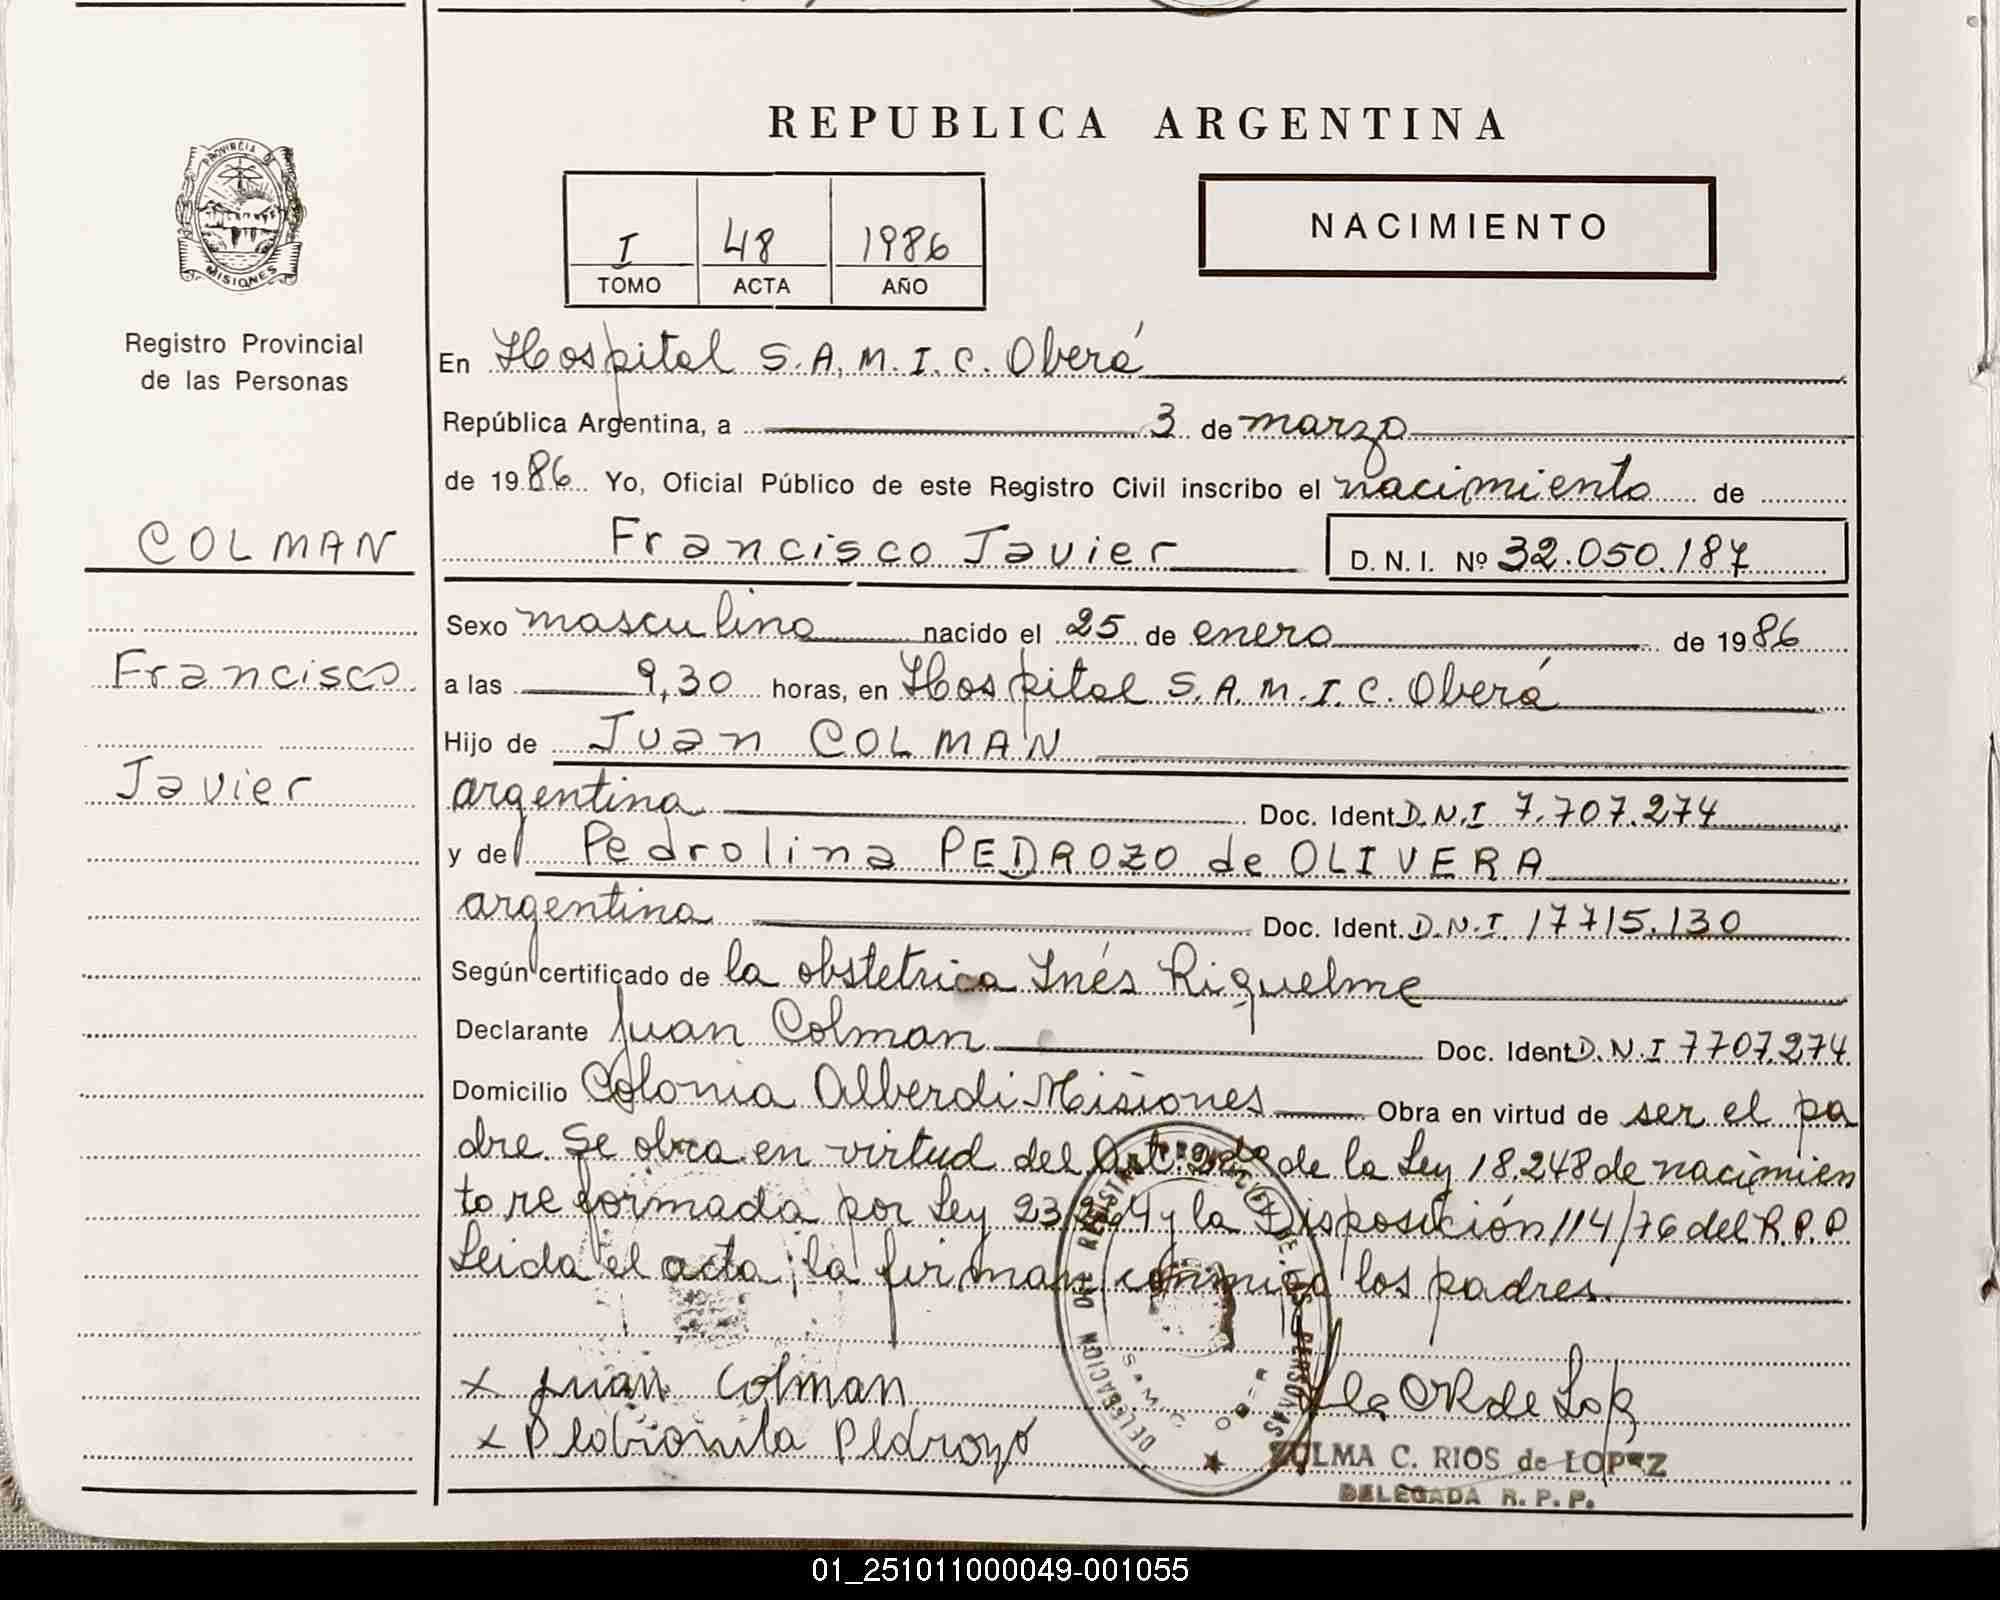 REPUBLICA ARGENTINA
PROVINCIA DE
MISIONES
I 48 1986
TOMO ACTA AÑO
NACIMIENTO
Registro Provincial
de las Personas
En Hospital S.A.M.I.C. Oberá
República Argentina, a 3 de marzo
de 1986 Yo, Oficial Público de este Registro Civil inscribo el nacimiento de
COLMAN
Francisco Javier D. N. I. Nº 32.050.187
Sexo masculino nacido el 25 de enero de 1986
Francisco
a las 9,30 horas, en Hospital S.A.M.I.C. Oberá
Hijo de Juan COLMAN
Javier
argentina Doc. Ident. D.N.I 7.707.274
y de Pedrolina PEDROZO de OLIVERA
argentina Doc. Ident. D.N.I. 17715.130
Según certificado de la obstetrica Inés Riquelme
Declarante Juan Colman Doc. Ident. D.N.I 7707.274
Domicilio Colonia Alberdi Misiones Obra en virtud de ser el pa
dre. Se obra en virtud del Art. de la Ley 18.248 de nacimien
to reformada por Ley 23.264 y la Disposición 114/76 del R.P.P
Leida el acta, la firman conmigo los padres
x Juan Colman
x Pedrozo
DELEGACION DEL REGISTRO PROVINCIAL DE LAS PERSONAS
ZULMA C. RIOS de LOPEZ
DELEGADA R. P. P.
01_251011000049-001055